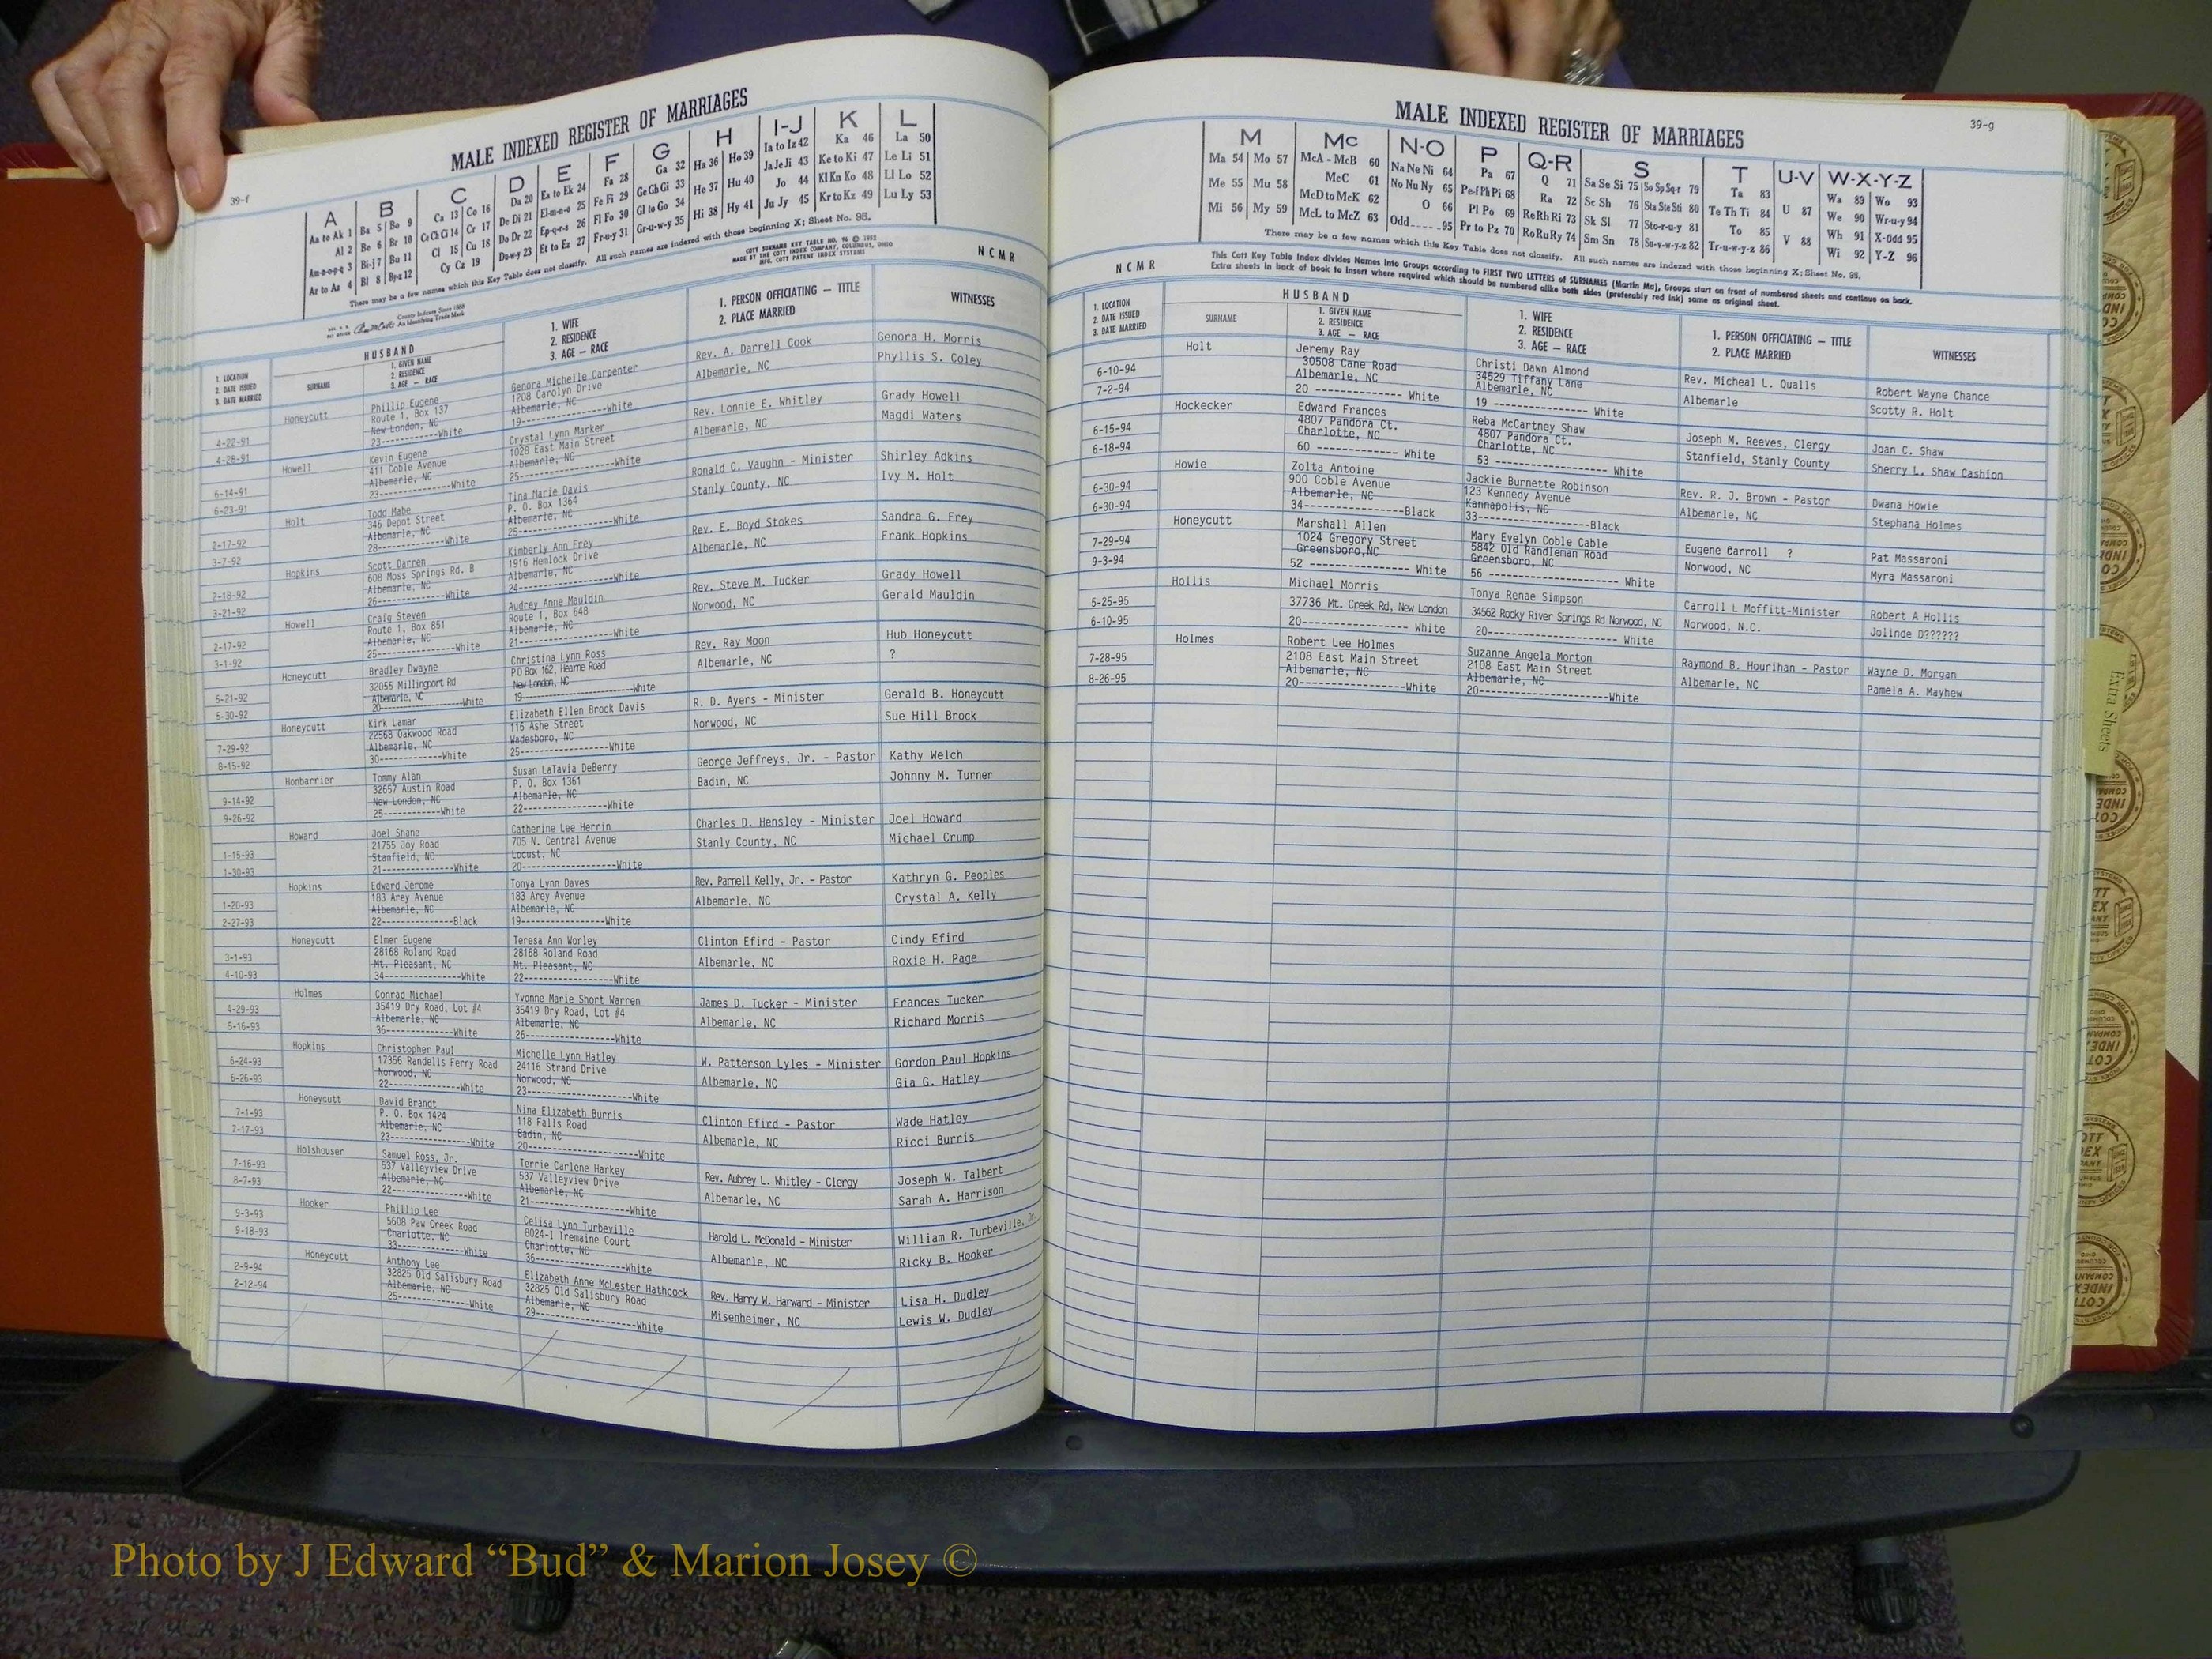 39-f
MALE INDEXED REGISTER OF MARRIAGES
A B C D E F G H I-J K L
Aa to Ak 1 Ba 5 Bo 9 Ca 13 Co 16 Da 20 Ea to Ek 24 Fa 28 Ga 32 Ha 36 Ho 39 Ia to Iz 42 Ka 46 La 50
Al 2 Be 6 Br 10 Ce Ch Ci 14 Cr 17 De Di 21 El-m-n-o 25 Fe Fi 29 Ge Gh Gi 33 He 37 Hu 40 Ja Je Ji 43 Ke to Ki 47 Le Li 51
Am-n-o-p-q 3 Bi-j 7 Bu 11 Cl 15 Cu 18 Do Dr 22 Ep-q-r-s 26 Fl Fo 30 Gl to Go 34 Hi 38 Hy 41 Jo 44 Kl Kn Ko 48 Ll Lo 52
Ar to Az 4 Bl 8 By-z 12 Cy Cz 19 Du-w-y 23 Et to Ez 27 Fr-u-y 31 Gr-u-w-y 35 Ju Jy 45 Kr to Kz 49 Lu Ly 53
There may be a few names which this Key Table does not classify. All such names are indexed with those beginning X; Sheet No. 96.
COTT SURNAME KEY TABLE NO. 96 © 1952
MADE BY THE COTT INDEX COMPANY, COLUMBUS, OHIO
MFG. COTT PATENT INDEX SYSTEMS
County Indexes Since 1888
An Identifying Trade Mark
NCMR
1. LOCATION
2. DATE ISSUED
3. DATE MARRIED
HUSBAND
SURNAME
1. GIVEN NAME
2. RESIDENCE
3. AGE — RACE
1. WIFE
2. RESIDENCE
3. AGE — RACE
1. PERSON OFFICIATING — TITLE
2. PLACE MARRIED
WITNESSES
4-22-91
4-28-91
Honeycutt
Phillip Eugene
Route 1, Box 137
New London, NC
23------------White
Genora Michelle Carpenter
1208 Carolyn Drive
Albemarle, NC
19------------------White
Rev. A. Darrell Cook
Albemarle, NC
Genora H. Morris
Phyllis S. Coley
6-14-91
6-23-91
Howell
Kevin Eugene
411 Coble Avenue
Albemarle, NC
23--------------White
Crystal Lynn Marker
1028 East Main Street
Albemarle, NC
25-------------------White
Rev. Lonnie E. Whitley
Albemarle, NC
Grady Howell
Magdi Waters
2-17-92
3-7-92
Holt
Todd Mabe
346 Depot Street
Albemarle, NC
28-------------White
Tina Marie Davis
P. O. Box 1364
Albemarle, NC
25-------------------White
Ronald C. Vaughn - Minister
Stanly County, NC
Shirley Adkins
Ivy M. Holt
2-18-92
3-21-92
Hopkins
Scott Darren
608 Moss Springs Rd. B
Albemarle, NC
26-------------White
Kimberly Ann Frey
1916 Hemlock Drive
Albemarle, NC
24-------------------White
Rev. E. Boyd Stokes
Albemarle, NC
Sandra G. Frey
Frank Hopkins
2-17-92
3-1-92
Howell
Craig Steven
Route 1, Box 851
Albemarle, NC
25---------------White
Audrey Anne Mauldin
Route 1, Box 648
Albemarle, NC
21-------------------White
Rev. Steve M. Tucker
Norwood, NC
Grady Howell
Gerald Mauldin
5-21-92
5-30-92
Honeycutt
Bradley Dwayne
32055 Millingport Rd
Albemarle, NC
20----------------White
Christina Lynn Ross
P O Box 162, Hearne Road
New London, NC
19----------------------White
Rev. Ray Moon
Albemarle, NC
Hub Honeycutt
?
7-29-92
8-15-92
Honeycutt
Kirk Lamar
22568 Oakwood Road
Albemarle, NC
30-------------White
Elizabeth Ellen Brock Davis
116 Ashe Street
Wadesboro, NC
25-------------------White
R. D. Ayers - Minister
Norwood, NC
Gerald B. Honeycutt
Sue Hill Brock
9-14-92
9-26-92
Honbarrier
Tommy Alan
32657 Austin Road
New London, NC
25-------------White
Susan LaTavia DeBerry
P. O. Box 1361
Albemarle, NC
22------------------White
George Jeffreys, Jr. - Pastor
Badin, NC
Kathy Welch
Johnny M. Turner
1-15-93
1-30-93
Howard
Joel Shane
21755 Joy Road
Stanfield, NC
21---------------White
Catherine Lee Herrin
705 N. Central Avenue
Locust, NC
20-------------------White
Charles D. Hensley - Minister
Stanly County, NC
Joel Howard
Michael Crump
1-20-93
2-27-93
Hopkins
Edward Jerome
183 Arey Avenue
Albemarle, NC
22--------------Black
Tonya Lynn Daves
183 Arey Avenue
Albemarle, NC
19-----------------White
Rev. Parnell Kelly, Jr. - Pastor
Albemarle, NC
Kathryn G. Peoples
Crystal A. Kelly
3-1-93
4-10-93
Honeycutt
Elmer Eugene
28168 Roland Road
Mt. Pleasant, NC
34---------------White
Teresa Ann Worley
28168 Roland Road
Mt. Pleasant, NC
22------------------White
Clinton Efird - Pastor
Albemarle, NC
Cindy Efird
Roxie H. Page
4-29-93
5-16-93
Holmes
Conrad Michael
35419 Dry Road, Lot #4
Albemarle, NC
36-------------White
Yvonne Marie Short Warren
35419 Dry Road, Lot #4
Albemarle, NC
26------------------White
James D. Tucker - Minister
Albemarle, NC
Frances Tucker
Richard Morris
6-24-93
6-26-93
Hopkins
Christopher Paul
17356 Randells Ferry Road
Norwood, NC
22--------------White
Michelle Lynn Hatley
24116 Strand Drive
Norwood, NC
23---------------------White
W. Patterson Lyles - Minister
Albemarle, NC
Gordon Paul Hopkins
Gia G. Hatley
7-1-93
7-17-93
Honeycutt
David Brandt
P. O. Box 1424
Albemarle, NC
23----------------White
Nina Elizabeth Burris
118 Falls Road
Badin, NC
20----------------------White
Clinton Efird - Pastor
Albemarle, NC
Wade Hatley
Ricci Burris
7-16-93
8-7-93
Holshouser
Samuel Ross, Jr.
537 Valleyview Drive
Albemarle, NC
22---------------White
Terrie Carlene Harkey
537 Valleyview Drive
Albemarle, NC
21--------------------White
Rev. Aubrey L. Whitley - Clergy
Albemarle, NC
Joseph W. Talbert
Sarah A. Harrison
9-3-93
9-18-93
Hooker
Phillip Lee
5608 Paw Creek Road
Charlotte, NC
33-------------White
Celisa Lynn Turbeville
8024-I Tremaine Court
Charlotte, NC
36------------------White
Harold L. McDonald - Minister
Albemarle, NC
William R. Turbeville, Jr.
Ricky B. Hooker
2-9-94
2-12-94
Honeycutt
Anthony Lee
32825 Old Salisbury Road
Albemarle, NC
25--------------White
Elizabeth Anne McLester Hathcock
32825 Old Salisbury Road
Albemarle, NC
29--------------------White
Rev. Harry W. Harward - Minister
Misenheimer, NC
Lisa H. Dudley
Lewis W. Dudley
39-g
MALE INDEXED REGISTER OF MARRIAGES
M Mc N-O P Q-R S T U-V W-X-Y-Z
Ma 54 Mo 57 McA - McB 60 Na Ne Ni 64 Pa 67 Q 71 Sa Se Si 75 So Sp Sq-r 79 Ta 83 U 87 Wa 89 Wo 93
Me 55 Mu 58 McC 61 No Nu Ny 65 Pe-f Ph Pi 68 Ra 72 Sc Sh 76 Sta Ste Sti 80 Te Th Ti 84 V 88 We 90 Wr-u-y 94
Mi 56 My 59 McD to McK 62 O 66 Pl Po 69 Re Rh Ri 73 Sk Sl 77 Sto-r-u-y 81 To 85 Wh 91 X-Odd 95
McL to McZ 63 Odd-----95 Pr to Pz 70 Ro Ru Ry 74 Sm Sn 78 Su-v-w-y-z 82 Tr-u-w-y-z 86 Wi 92 Y-Z 96
There may be a few names which this Key Table does not classify. All such names are indexed with those beginning X; Sheet No. 96.
This Cott Key Table Index divides Names into Groups according to FIRST TWO LETTERS of SURNAMES (Martin Ma). Groups start on front of numbered sheets and continue on back.
Extra sheets in back of book to insert where required which should be numbered alike both sides (preferably red ink) same as original sheet.
NCMR
1. LOCATION
2. DATE ISSUED
3. DATE MARRIED
HUSBAND
SURNAME
1. GIVEN NAME
2. RESIDENCE
3. AGE — RACE
1. WIFE
2. RESIDENCE
3. AGE — RACE
1. PERSON OFFICIATING — TITLE
2. PLACE MARRIED
WITNESSES
6-10-94
7-2-94
Holt
Jeremy Ray
30508 Cane Road
Albemarle, NC
20 -------------- White
Christi Dawn Almond
34529 Tiffany Lane
Albemarle, NC
19 --------------- White
Rev. Micheal L. Qualls
Albemarle
Robert Wayne Chance
Scotty R. Holt
6-15-94
6-18-94
Hockecker
Edward Frances
4807 Pandora Ct.
Charlotte, NC
60 -------------- White
Reba McCartney Shaw
4807 Pandora Ct.
Charlotte, NC
53 ------------------ White
Joseph M. Reeves, Clergy
Stanfield, Stanly County
Joan C. Shaw
Sherry L. Shaw Cashion
6-30-94
6-30-94
Howie
Zolta Antoine
900 Coble Avenue
Albemarle, NC
34-----------------Black
Jackie Burnette Robinson
123 Kennedy Avenue
Kannapolis, NC
33------------------Black
Rev. R. J. Brown - Pastor
Albemarle, NC
Dwana Howie
Stephana Holmes
7-29-94
9-3-94
Honeycutt
Marshall Allen
1024 Gregory Street
Greensboro,NC
52 ---------------- White
Mary Evelyn Coble Cable
5842 Old Randleman Road
Greensboro, NC
56 --------------------- White
Eugene Carroll ?
Norwood, NC
Pat Massaroni
Myra Massaroni
5-25-95
6-10-95
Hollis
Michael Morris
37736 Mt. Creek Rd, New London
20----------------- White
Tonya Renae Simpson
34562 Rocky River Springs Rd Norwood, NC
20-------------------- White
Carroll L Moffitt-Minister
Norwood, N.C.
Robert A Hollis
Jolinde D??????
7-28-95
8-26-95
Holmes
Robert Lee Holmes
2108 East Main Street
Albemarle, NC
20-----------------White
Suzanne Angela Morton
2108 East Main Street
Albemarle, NC
20--------------------White
Raymond B. Hourihan - Pastor
Albemarle, NC
Wayne D. Morgan
Pamela A. Mayhew
Extra Sheets
Photo by J Edward “Bud” & Marion Josey ©